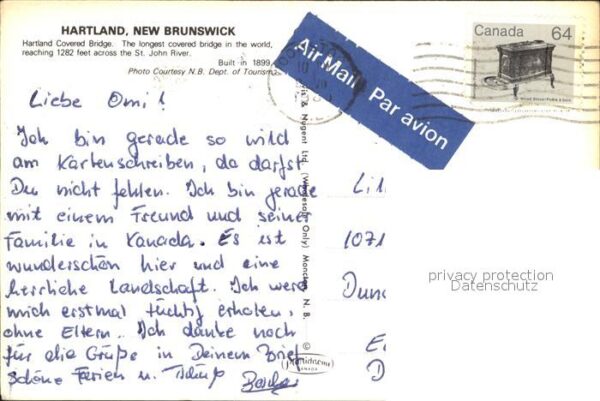 HARTLAND, NEW BRUNSWICK
Hartland Covered Bridge. The longest covered bridge in the world,
reaching 1282 feet across the St. John River.
Built in 1899.
Photo Courtesy N.B. Dept. of Tourism
Air Mail Par avion
Canada 64
Liebe Omi!
Ich bin gerade so wild
am Kartenschreiben, da darfst
Du nicht fehlen. Ich bin gerade
mit einem Freund und seiner
Familie in Kanada. Es ist
wunderschön hier und eine
herrliche Landschaft. Ich werd
mich erstmal tüchtig erholen,
ohne Eltern. Ich danke noch
für die Grüße in Deinem Brief
Schöne Ferien u. Tschüß
& Nugent Ltd. (Wholesale Only) Moncton, N. B.
©
CANADA
Li
1071
Dun
E
D
privacy protection
Datenschutz